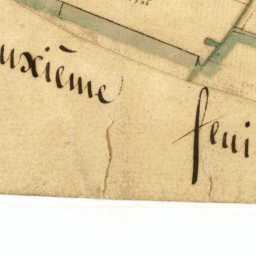 uxième feui